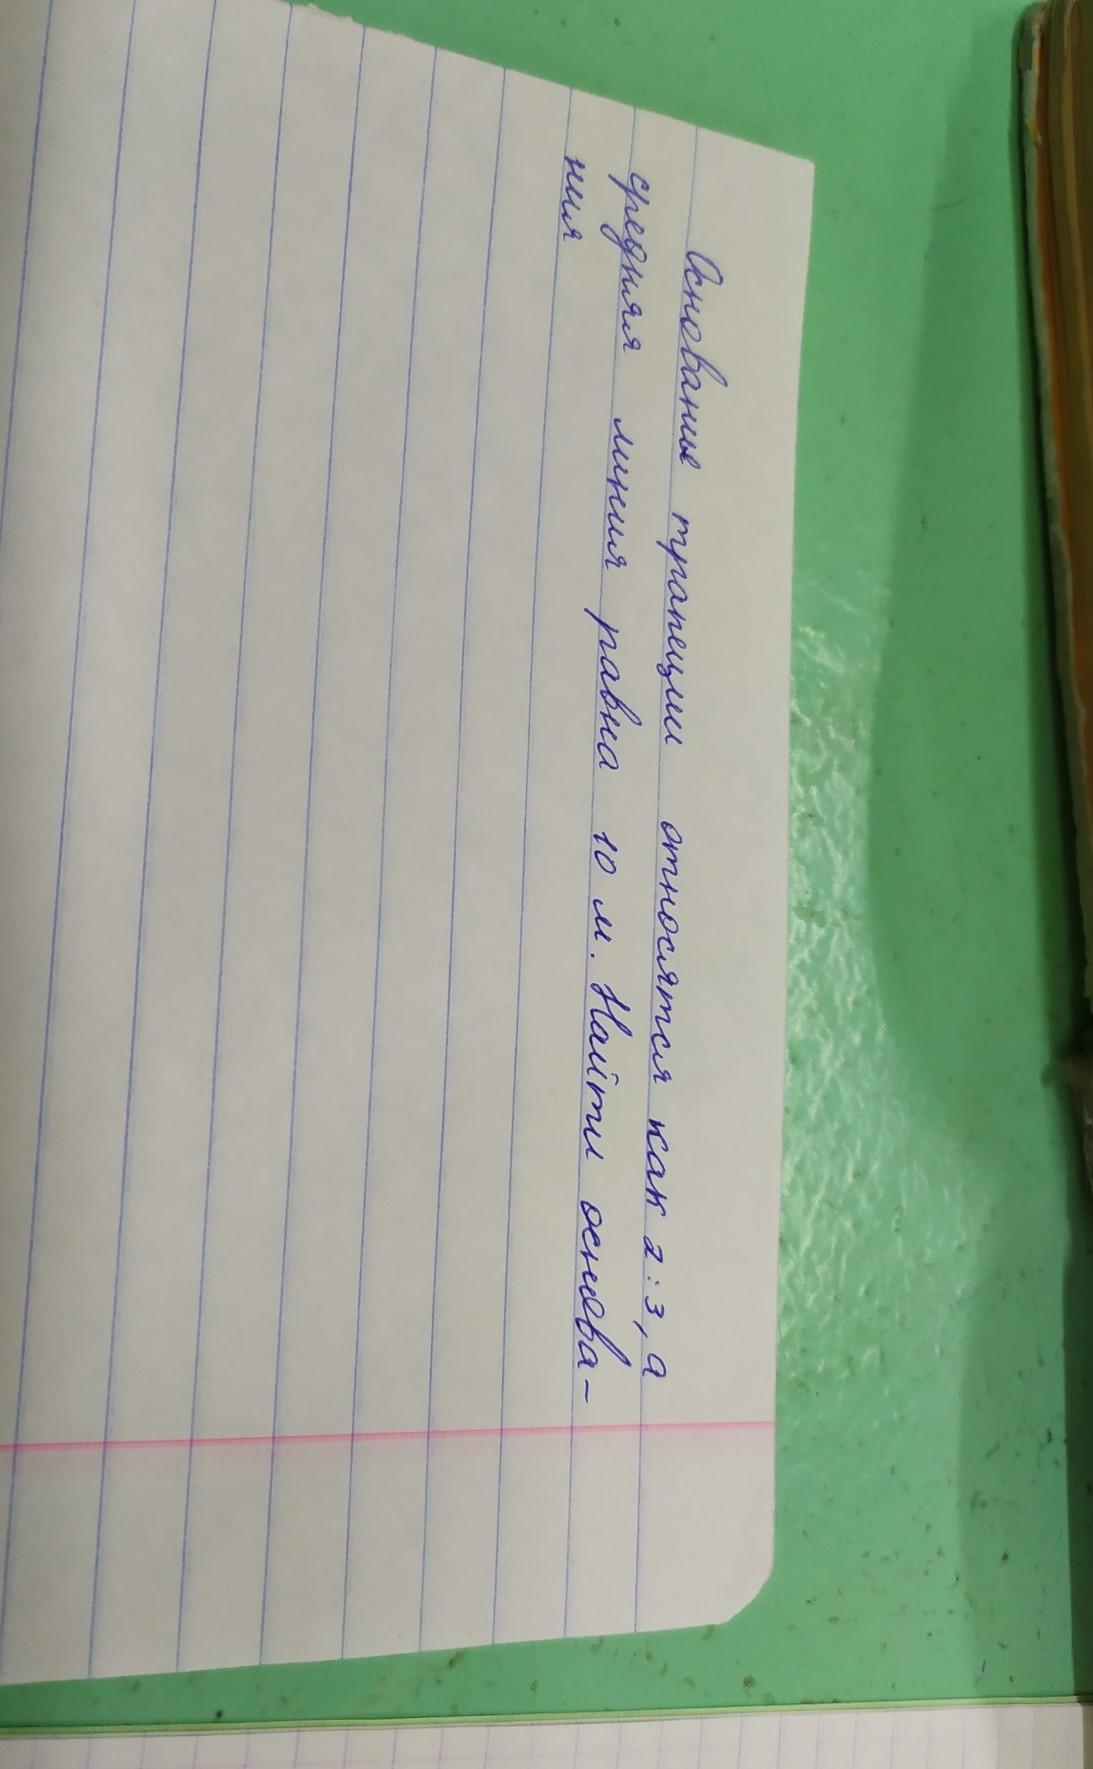 Основание трапеции относятся как 2:3, а
средняя линия равна 10 м. Найти основа-
ния